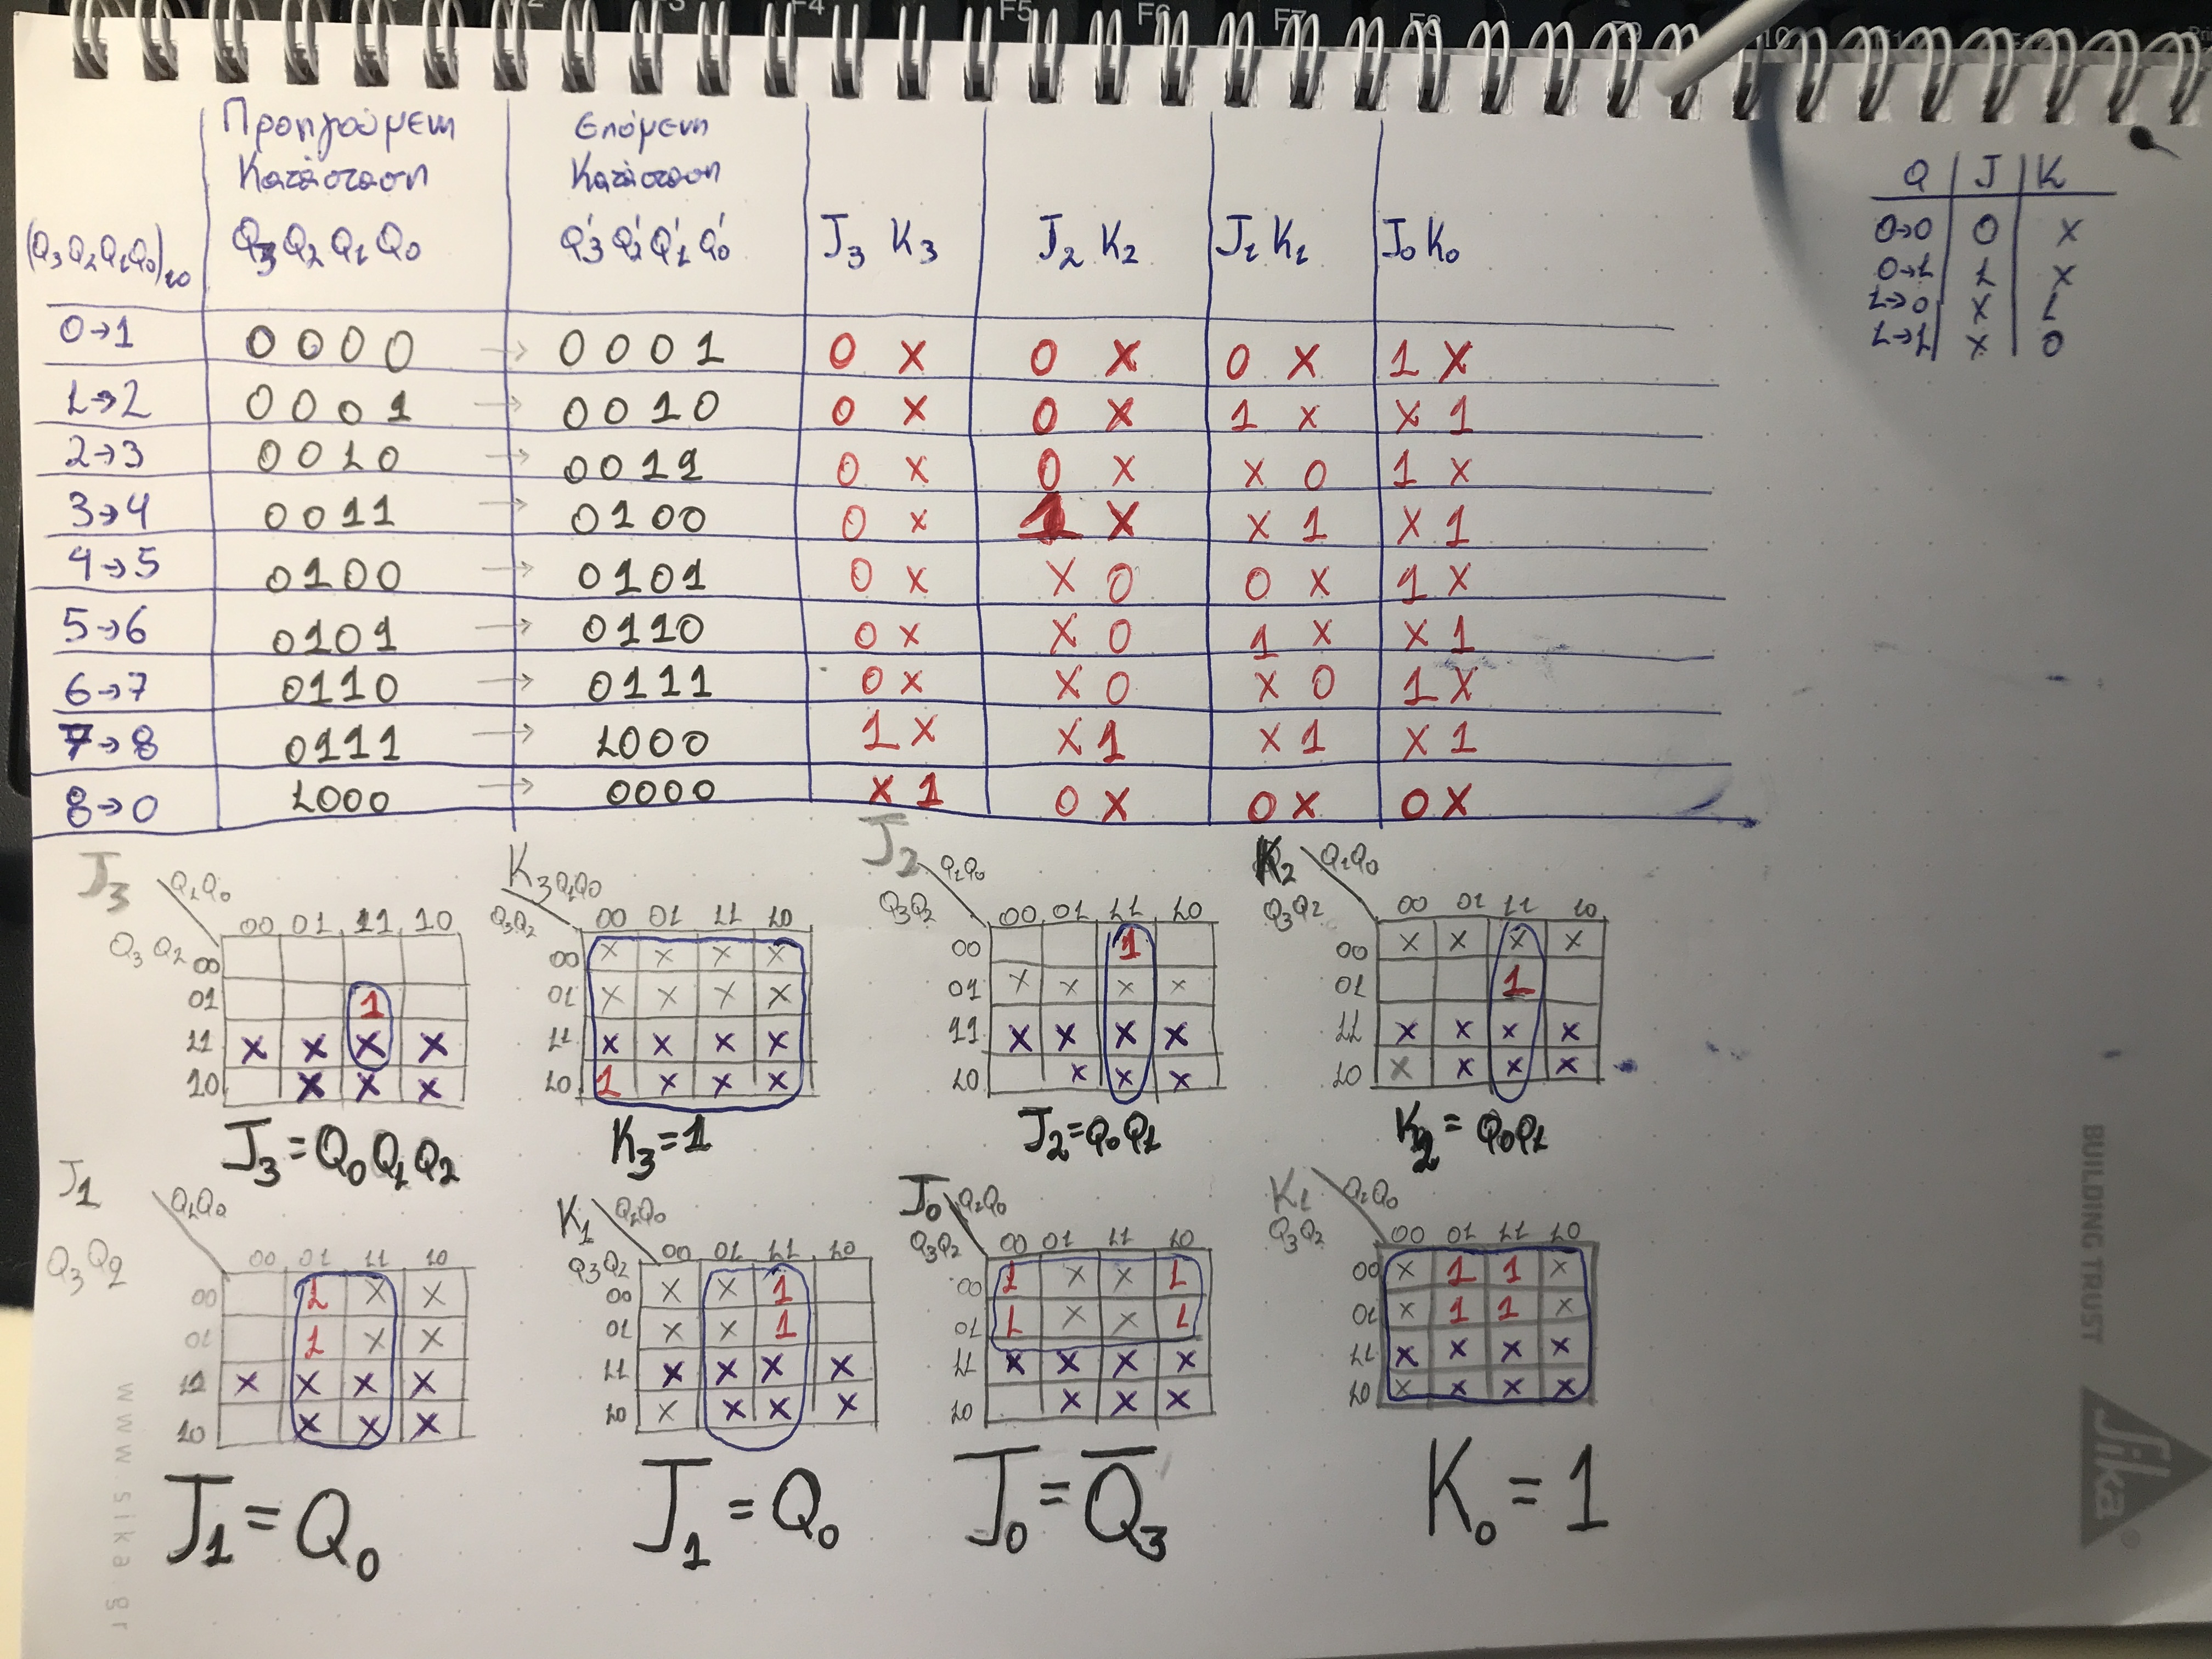 F4 F5 F6 F7 F8 F9
Προηγούμενη Κατάσταση
Επόμενη Κατάσταση
(Q3Q2Q1Q0)10 Q3Q2Q1Q0 Q'3Q'2Q'1Q'0 J3 K3 J2 K2 J1 K1 J0 K0
0→1 0000 → 0001 0 X 0 X 0 X 1 X
1→2 0001 → 0010 0 X 0 X 1 X X 1
2→3 0010 → 0011 0 X 0 X X 0 1 X
3→4 0011 → 0100 0 X 1 X X 1 X 1
4→5 0100 → 0101 0 X X 0 0 X 1 X
5→6 0101 → 0110 0 X X 0 1 X X 1
6→7 0110 → 0111 0 X X 0 X 0 1 X
7→8 0111 → 1000 1 X X 1 X 1 X 1
8→0 1000 → 0000 X 1 0 X 0 X 0 X
Q J K
0→0 0 X
0→1 1 X
1→0 X 1
1→1 X 0
J3 Q1Q0
Q3Q2 00 01 11 10
00
01 1
11 X X X X
10 X X X
J3=Q0Q1Q2
K3 Q1Q0
Q3Q2 00 01 11 10
00 X X X X
01 X X X X
11 X X X X
10 1 X X X
K3=1
J2 Q1Q0
Q3Q2 00 01 11 10
00 1
01 X X X X
11 X X X X
10 X X X
J2=Q0Q1
K2 Q1Q0
Q3Q2 00 01 11 10
00 X X X X
01 1
11 X X X X
10 X X X X
K2=Q0Q1
J1 Q1Q0
Q3Q2 00 01 11 10
00 1 X X
01 1 X X
11 X X X X
10 X X X
J1=Q0
K1 Q1Q0
Q3Q2 00 01 11 10
00 X X 1
01 X X 1
11 X X X X
10 X X X X
J1=Q0
J0 Q1Q0
Q3Q2 00 01 11 10
00 1 X X 1
01 1 X X 1
11 X X X X
10 X X X
J0=Q̅3
K1 Q1Q0
Q3Q2 00 01 11 10
00 X 1 1 X
01 X 1 1 X
11 X X X X
10 X X X X
K0=1
BUILDING TRUST
Sika®
www.sika.gr